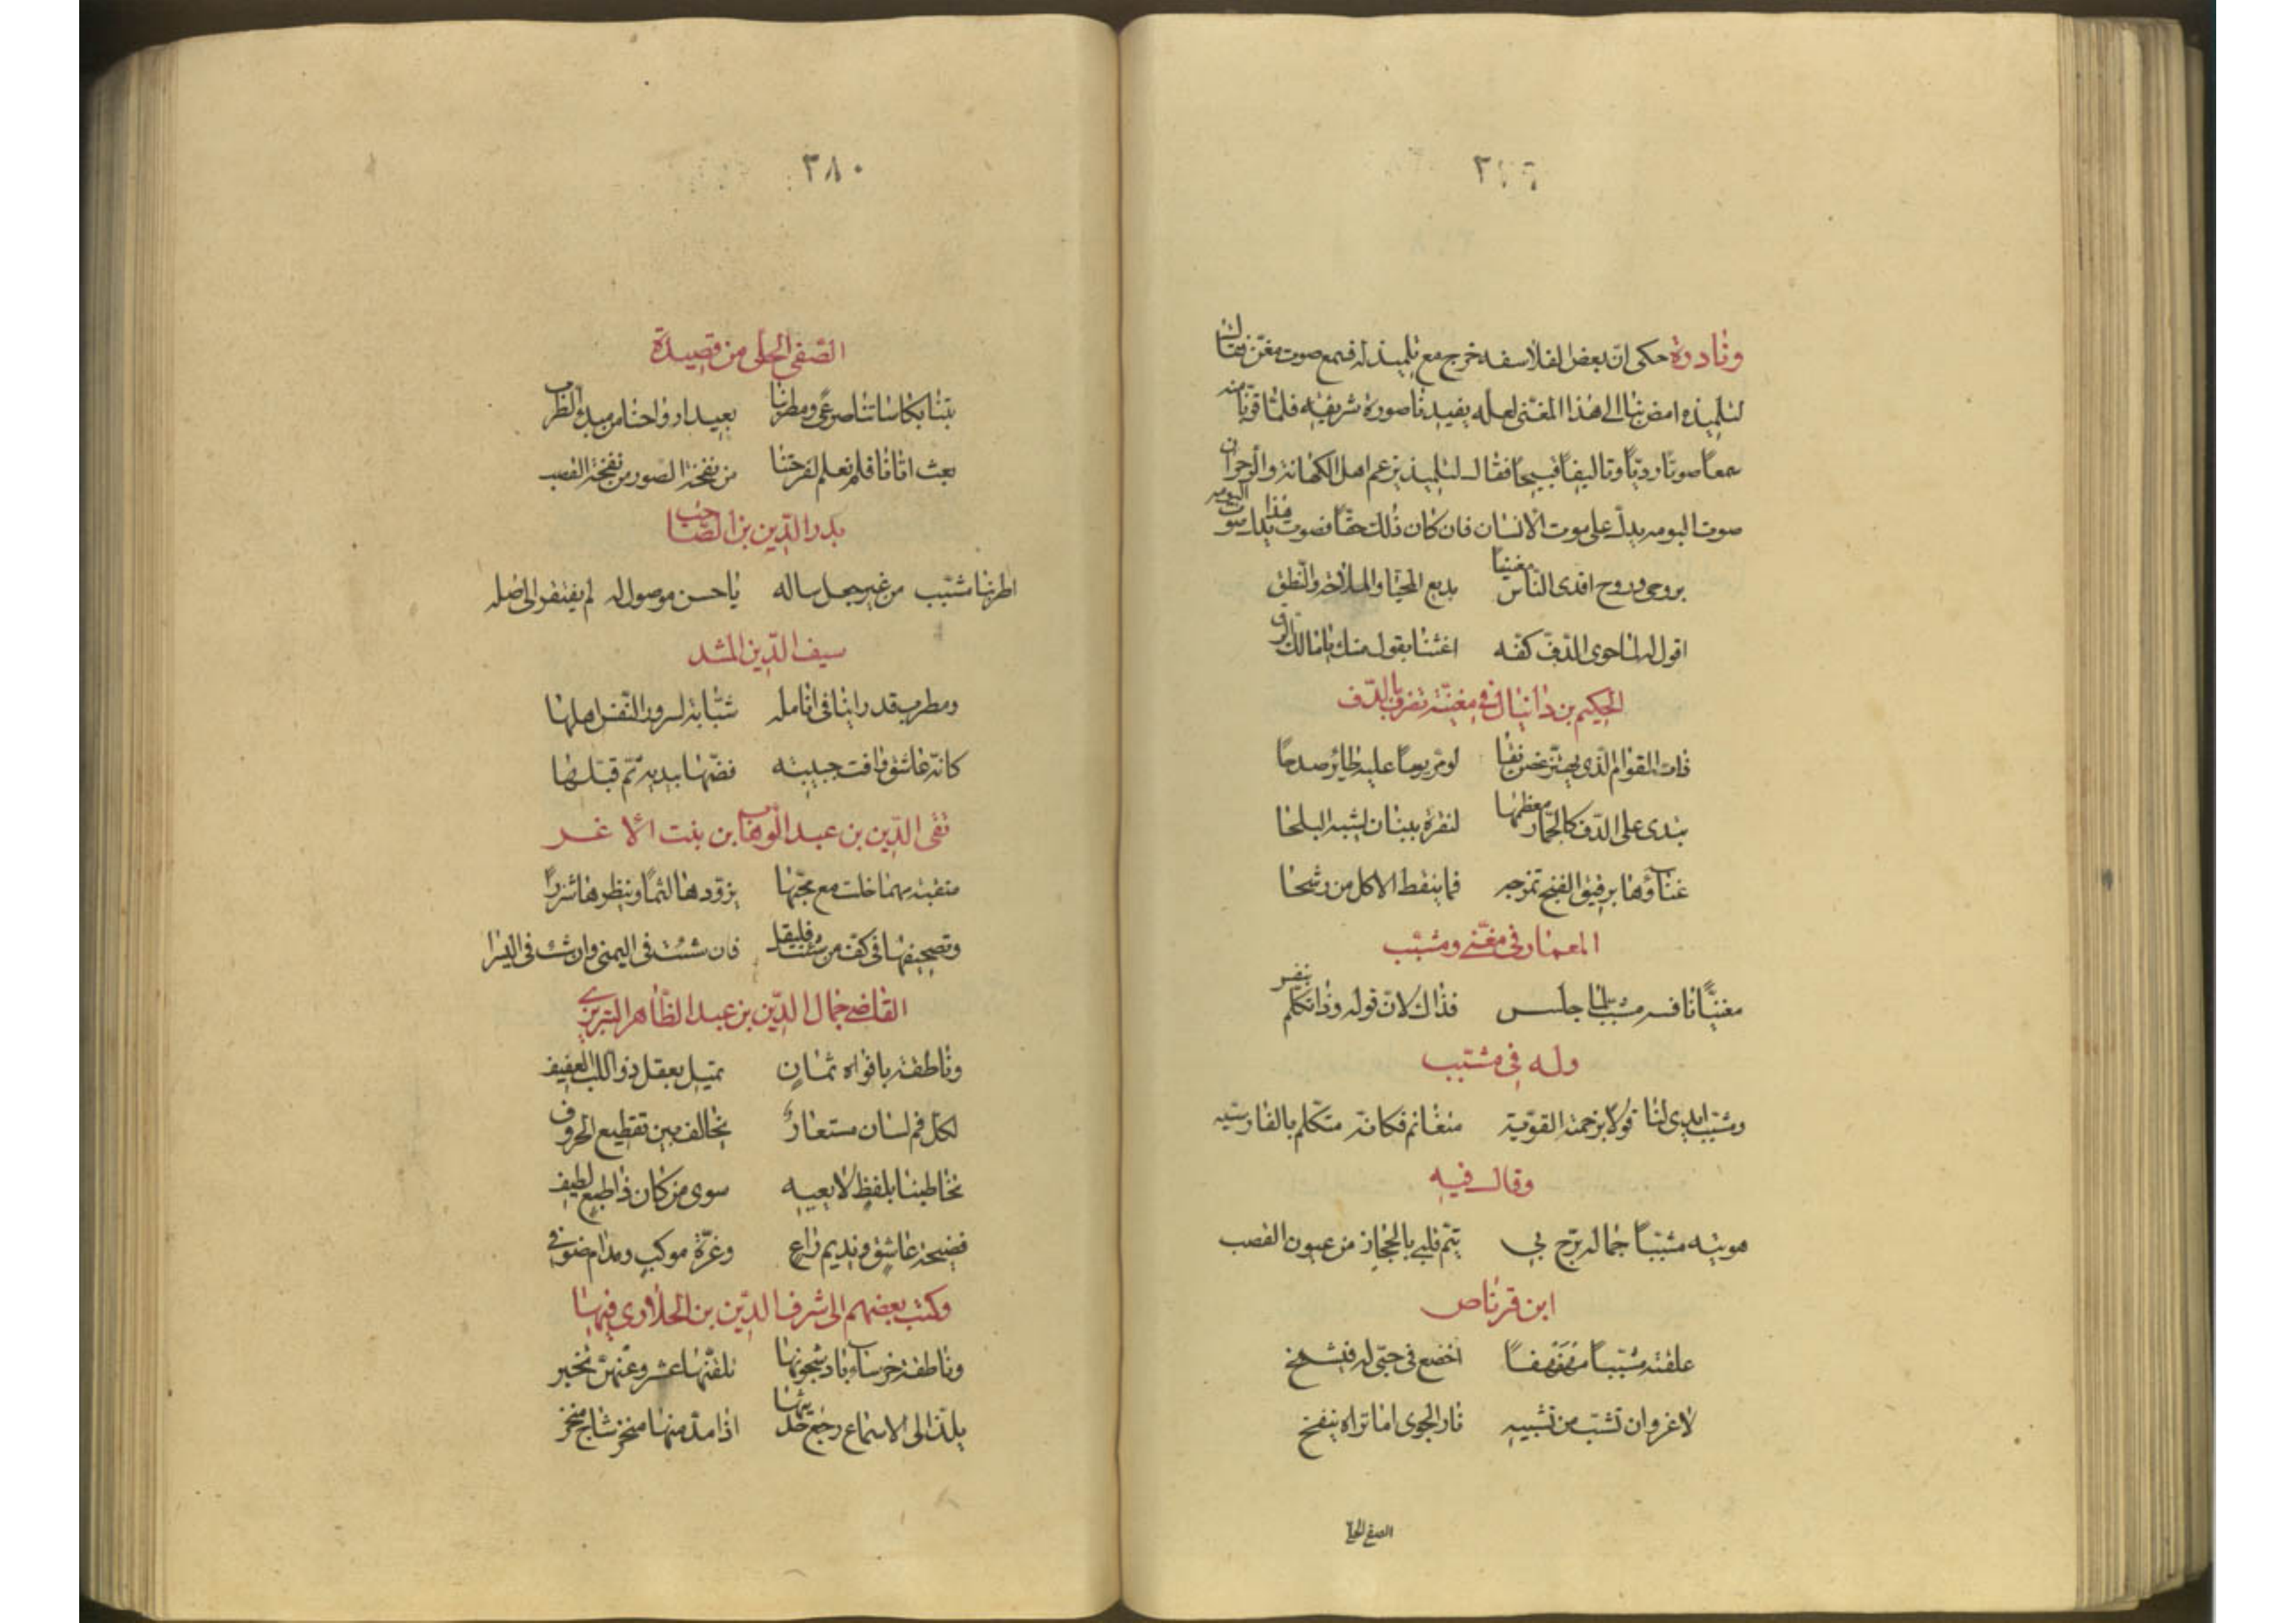 ٣٧٩
ونادرة حكى ان بعض الفلاسفه خرج مع تلميذ له فسمع صوت مغن فقال
لتلميذه امض بنا الى هذا المغنى لعله يفيدنا صورة شريفه فلما قربا منه
سمعا صوتا رديا وتاليفا قبيحا فقال لتلميذه يزعم اهل الكهانة والزجر ان
صوت البومه يدل على موت الانسان فان كان ذلك حقا فصوت هذا يدل على موت البومه
بروحى وروح افدى الناس مغنيا بديع المحيا والملاحة والنطق
اقول له لما حوى الدف كفه اغثنا بقول منك يا مالك الرق
الحكيم بن دانيال فى مغنية تضرب بالدف
ذات القوام الذى يهتز غصن نقا لو مر يوما عليه طائر صدحا
تبدى على الدف كالجمار معظمها لنقره ببنان تشبه البلحا
غناؤها برقيق الغنج تمزجه فما ينقط الا كل من رشحا
المعمار فى مغنى ومشبب
مغنيا نافسه مشبب لما جلس فذاك لان قوله وذا تكلم بنفس
وله فى مشبب
ومشبب ابدى لنا قولا بزخمته القويه متغانم فكانه متكلم بالفارسيه
وقال فيه
هويته مشببا جماله برح بى يتم قلبى بالحجاز من عيون القصب
ابن قرناص
علقته مشببا مهفهفا اخضع فى حبى له فيشمخ
لا غرو ان تشب من تشبيبه نار الجوى اما تراه ينفخ
الصفى الحلى
٣٨٠
الصفى الحلى من قصيدة
بتنا بكاساتنا صرعى ومطربنا يعيد ارواحنا من مبدئ الطرب
بعث اتانا فلم نعلم لفرحتنا من نفخة الصور من نفخة القصب
بدر الدين بن الصاحب
اطربنا مشبب من غير جعل ساله يا حسن موصول له لم يفتقر الى صله
سيف الدين المشد
ومطرب قد راينا فى انامله شبابة لسرور النفس اهلها
كانه عاشق وافت حبيبته فضمها بيديه ثم قبلها
تقى الدين بن عبد الوهاب بن بنت الاغر
منقبة مهما خلت مع محبها يزودها لثما وينظرها شزرا
وتصحيفها فى كف من شئت فليقل فان شئت فى اليمنى وان شئت فى اليسرا
القاضى جمال الدين بن عبد الظاهر التبريزى
وناطقة بافواه ثمان تميل بعقل ذو اللب العفيف
لكل فم لسان مستعار يخالف بين تقطيع الحروف
تخاطبنا بلفظ لا يعيه سوى من كان ذا طبع لطيف
فضيحة عاشق ونديم راع وغرة موكب ومدام صوفى
وكتب بعضهم الى شرف الدين بن الحلاوى فيها
وناطقة خرساء باد شجونها تلقنها عشر وعنهن تخبر
يلذ الى الاسماع رجع حديثها اذا سد منها منخر شاج منخر